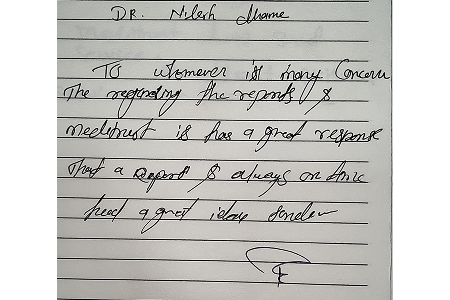 DR. Nilesh dhame
To whomever is many Concern
The regarding the reports &
meditrust is has a great response
that a report is always on time
head a great